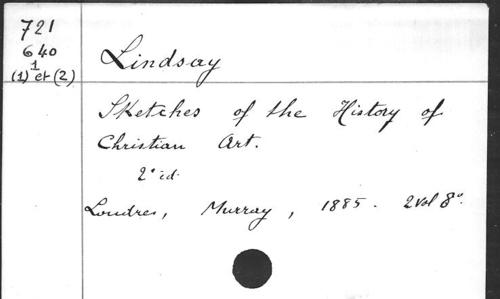 721
640
1
(1) et (2)
Lindsay
Sketches of the History of
Christian Art.
2ᵉ éd.
Londres, Murray, 1885. 2 vol 8°.